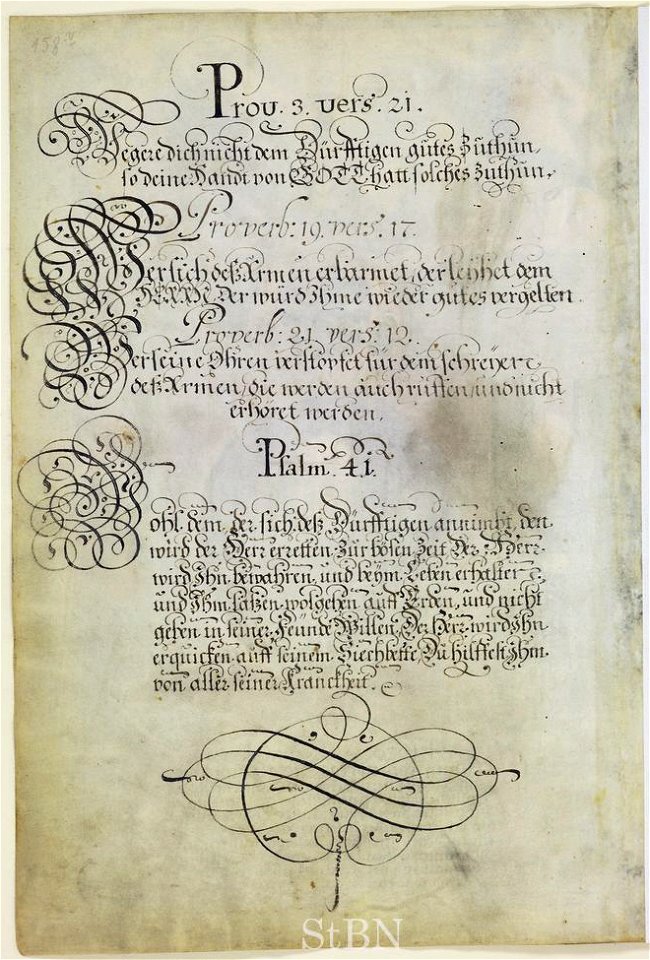 158v
Prov. 3. vers. 21.
Wegere dich nicht dem Dürfftigen gutes zuthun,
so deine Handt von GOTT hatt solches zuthun.
Proverb: 19. vers. 17.
Wer sich deß Armen erbarmet, der leyhet dem
HERRN Der würd Ihme wieder gutes vergelten.
Proverb: 21. vers. 12.
Wer seine Ohren verstopfet für dem schreyen
deß Armen, die werden auch ruffen, und nicht
erhöret werden.
Psalm. 41.
Wohl dem, der sich deß Dürfftigen annimbt, den
wird der Herr erretten zur bösen Zeit, Der Herr
wird Ihn bewahren, und beym Leben erhalten
und Ihm laßen wolgehen auff Erden, und nicht
geben in seiner Feinde Willen, Der Herr wird Ihn
erquicken auff seinem Siechbette, Du hilffest Ihm
von aller seiner Kranckheit.
StBN